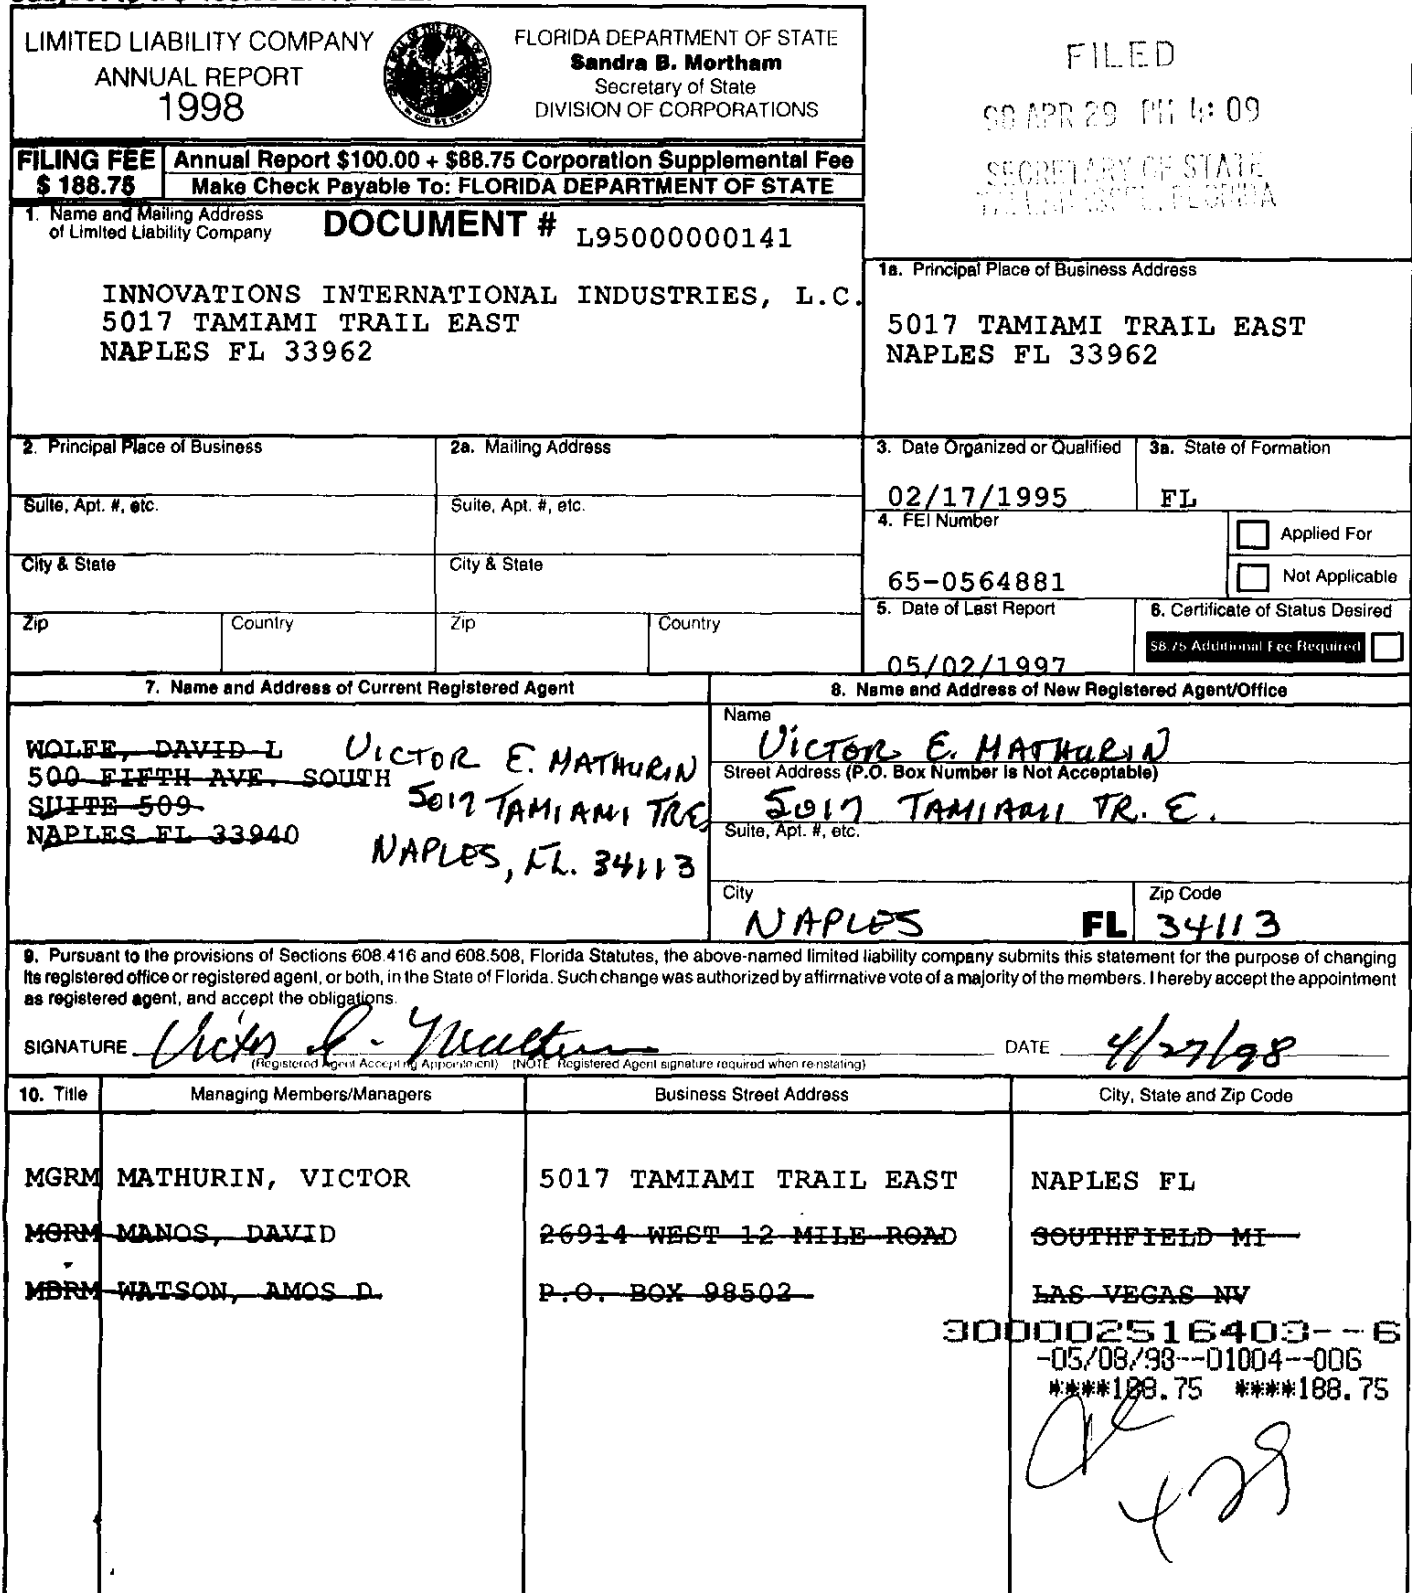 LIMITED LIABILITY COMPANY
ANNUAL REPORT
1998
FLORIDA DEPARTMENT OF STATE
Sandra B. Mortham
Secretary of State
DIVISION OF CORPORATIONS
FILED
98 APR 29 PM 4:09
SECRETARY OF STATE
TALLAHASSEE, FLORIDA
FILING FEE
$ 188.75
Annual Report $100.00 + $88.75 Corporation Supplemental Fee
Make Check Payable To: FLORIDA DEPARTMENT OF STATE
1. Name and Mailing Address
of Limited Liability Company
DOCUMENT # L95000000141
INNOVATIONS INTERNATIONAL INDUSTRIES, L.C.
5017 TAMIAMI TRAIL EAST
NAPLES FL 33962
1a. Principal Place of Business Address
5017 TAMIAMI TRAIL EAST
NAPLES FL 33962
2. Principal Place of Business
2a. Mailing Address
Suite, Apt. #, etc.
Suite, Apt. #, etc.
City & State
City & State
Zip
Country
Zip
Country
3. Date Organized or Qualified
02/17/1995
3a. State of Formation
FL
4. FEI Number
65-0564881
Applied For
Not Applicable
5. Date of Last Report
05/02/1997
6. Certificate of Status Desired
$8.75 Additional Fee Required
7. Name and Address of Current Registered Agent
WOLFE, DAVID L
500 FIFTH AVE. SOUTH
SUITE 509
NAPLES FL 33940
VICTOR E. MATHURIN
5017 TAMIAMI TR E
NAPLES, FL. 34113
8. Name and Address of New Registered Agent/Office
Name
VICTOR E. MATHURIN
Street Address (P.O. Box Number is Not Acceptable)
5017 TAMIAMI TR. E.
Suite, Apt. #, etc.
City
NAPLES
FL
Zip Code
34113
9. Pursuant to the provisions of Sections 608.416 and 608.508, Florida Statutes, the above-named limited liability company submits this statement for the purpose of changing
its registered office or registered agent, or both, in the State of Florida. Such change was authorized by affirmative vote of a majority of the members. I hereby accept the appointment
as registered agent, and accept the obligations.
SIGNATURE Victor E. Mathurin
(Registered Agent Accepting Appointment) (NOTE: Registered Agent signature required when reinstating)
DATE 4/27/98
10. Title
Managing Members/Managers
Business Street Address
City, State and Zip Code
MGRM MATHURIN, VICTOR 5017 TAMIAMI TRAIL EAST NAPLES FL
MGRM MANOS, DAVID 26914 WEST 12 MILE ROAD SOUTHFIELD MI
MBRM WATSON, AMOS D. P.O. BOX 98502 LAS VEGAS NV
300002516403--6
-05/08/98--01004--006
****188.75 ****188.75